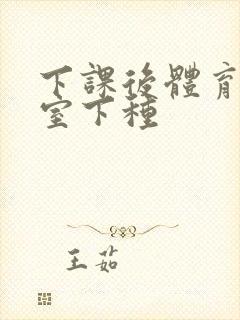 下課後體育
室下種
王茹